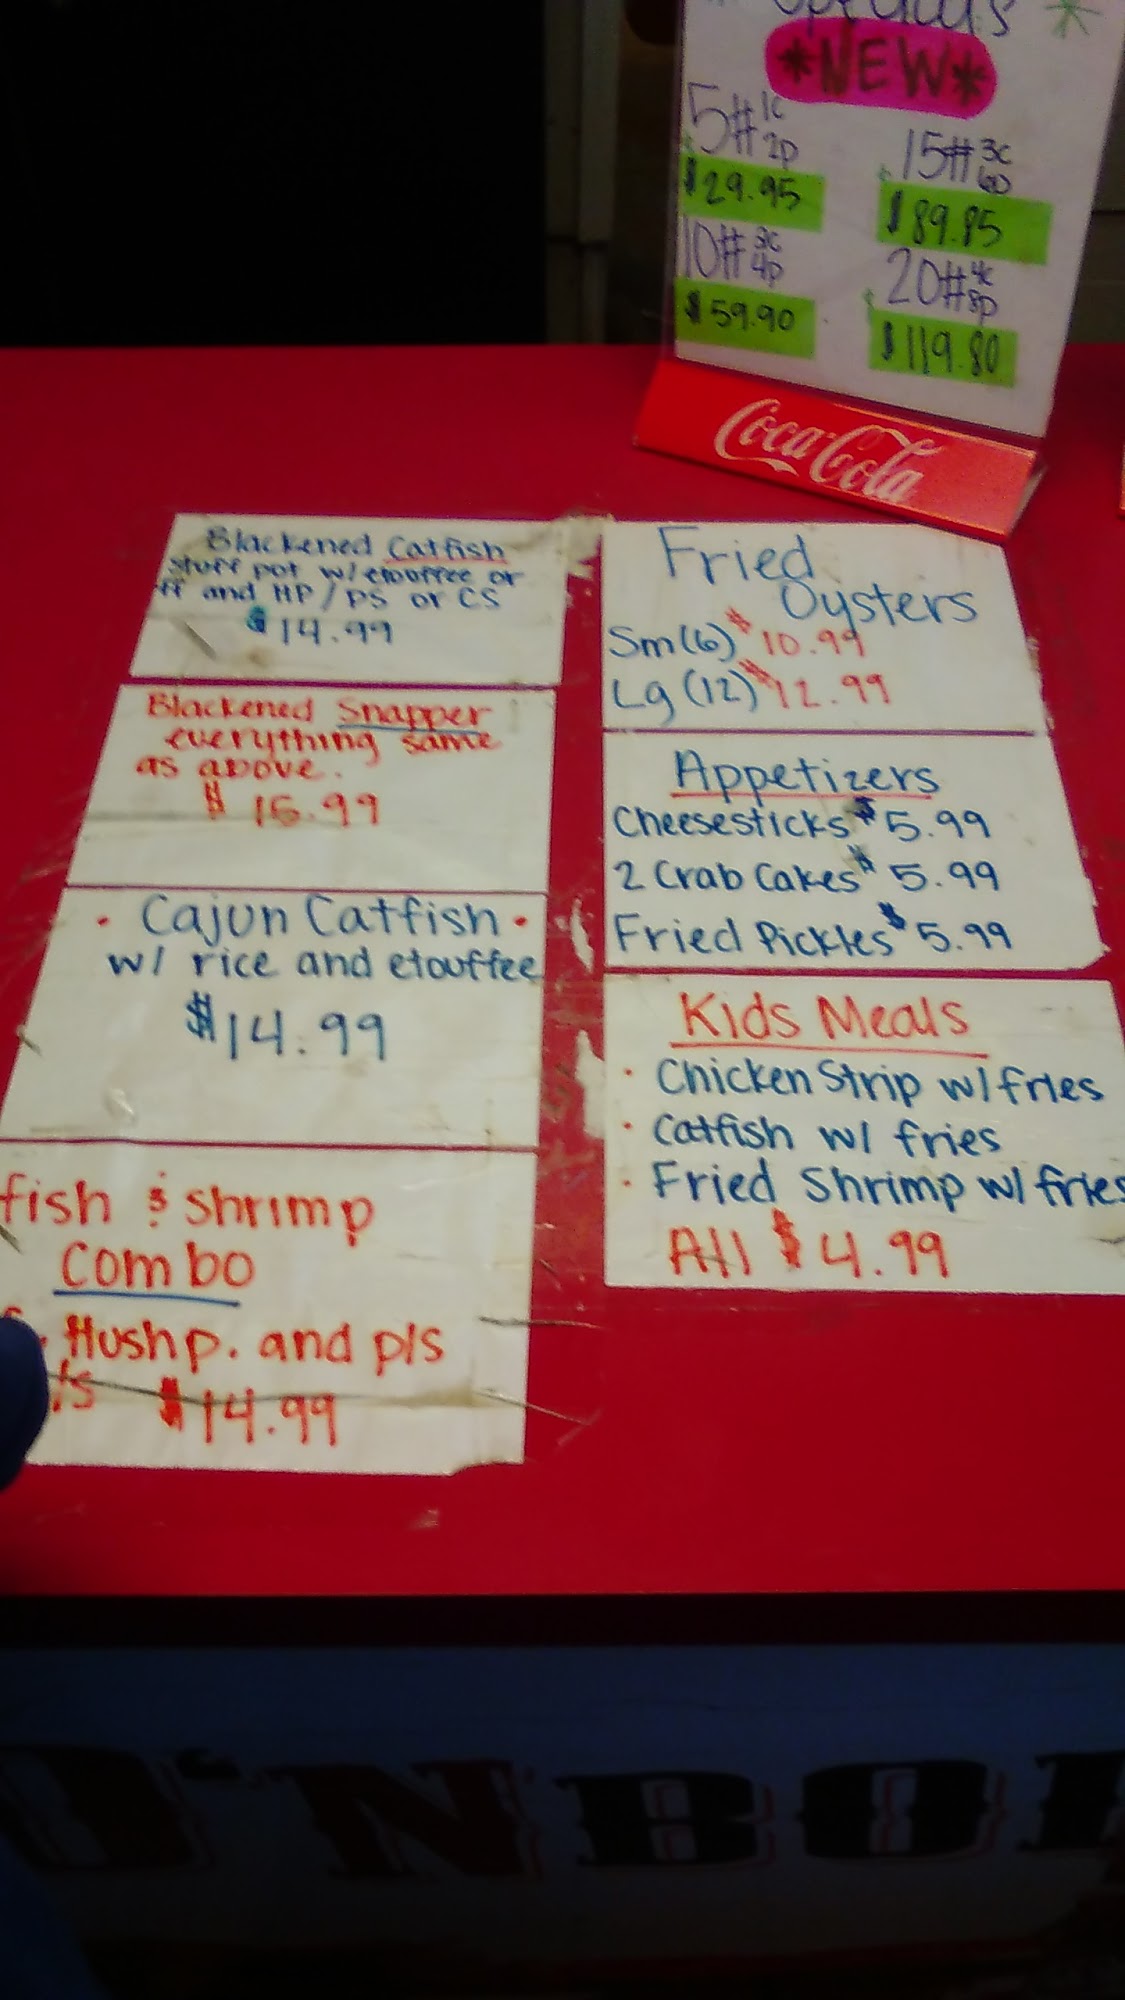 Specials
*NEW*
5# 1c 2p
$29.95
15# 3c 6p
$89.85
10# 4p
$59.90
20# 4c 8p
$119.80
Coca-Cola
Blackened Catfish
stuff pot w/ etouffee or
ff and HP/PS or CS
$14.99
Blackened Snapper
everything same
as above.
$15.99
• Cajun Catfish •
w/ rice and etouffee
$14.99
fish & Shrimp
Combo
Hushp. and p/s
/s $14.99
Fried
Oysters
Sm(6) $10.99
Lg (12) $12.99
Appetizers
Cheesesticks $5.99
2 Crab Cakes $5.99
Fried Pickles $5.99
Kids Meals
• Chicken Strip w/ fries
• Catfish w/ fries
• Fried Shrimp w/ fries
All $4.99
'N BO